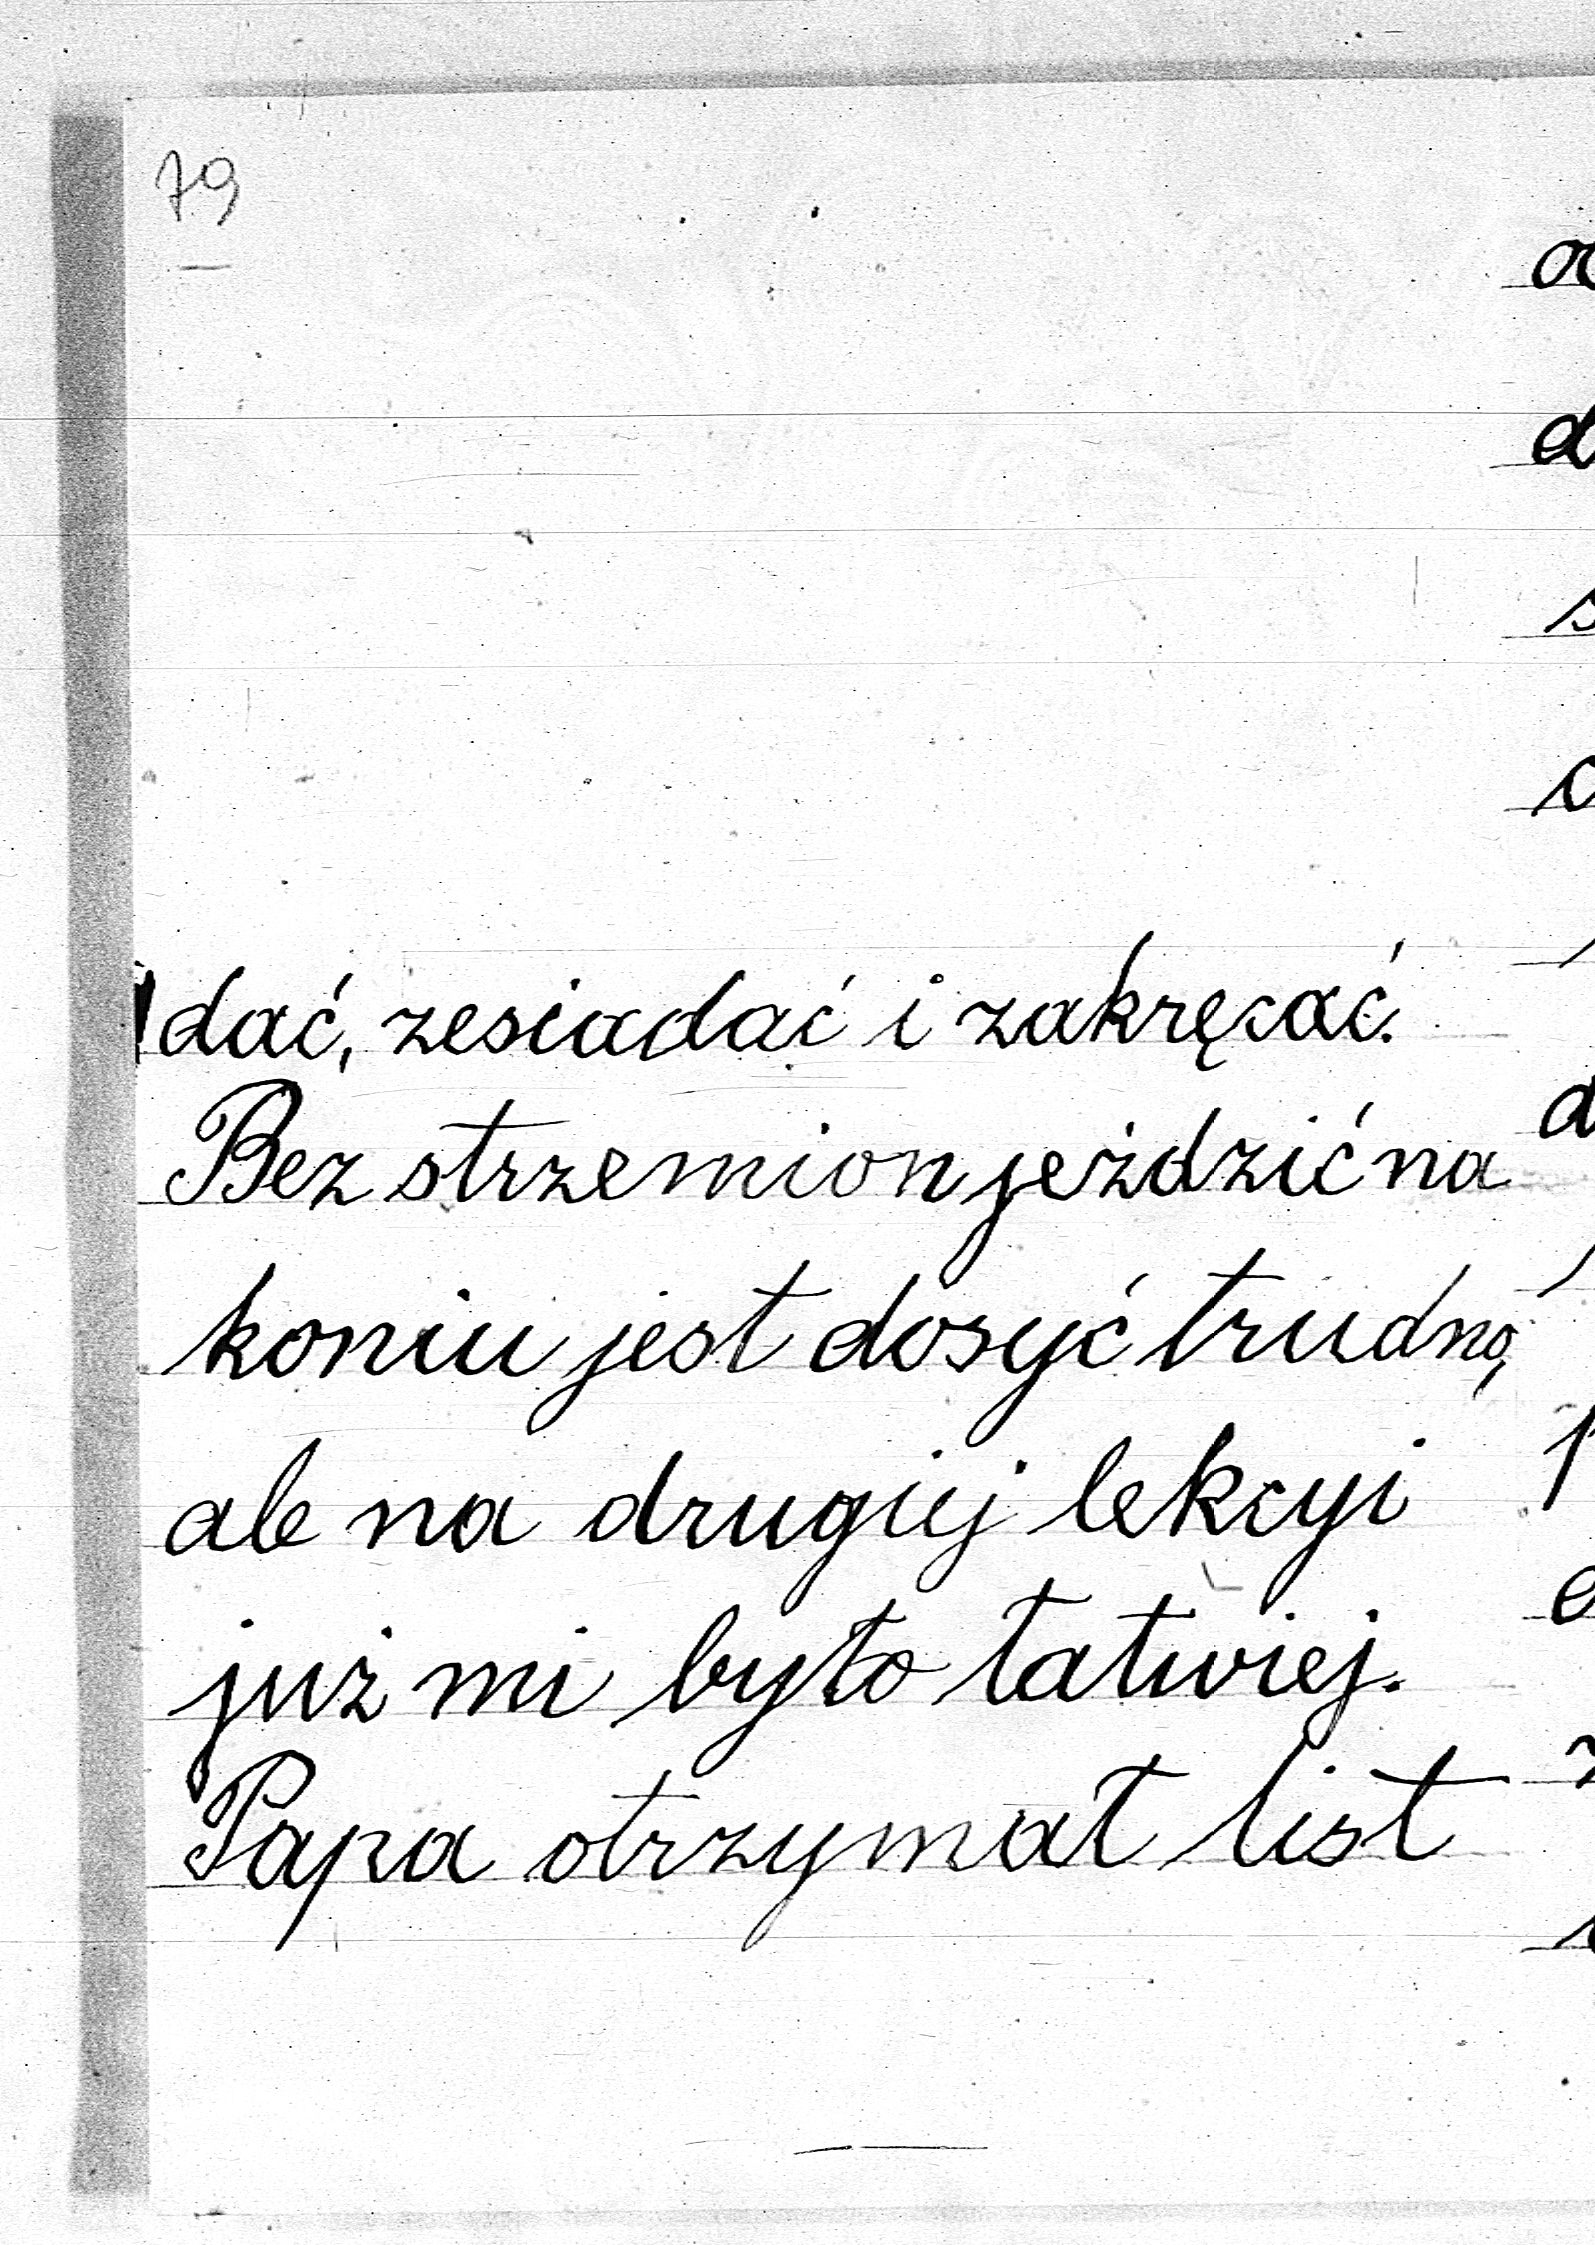 79
dać, zesiadać i zakręcać.
Bez strzemion jeździć na
koniu jest dosyć trudno,
ale na drugiej lekcyi
już mi było łatwiej.
Papa otrzymał list